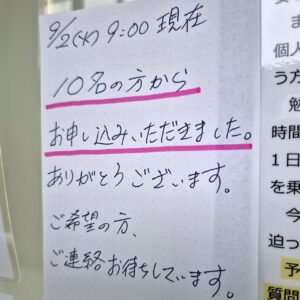 9/2(火) 9:00 現在
10名の方から
お申し込みいただきました。
ありがとうございます。
ご希望の方、
ご連絡お待ちしています。
ま
個人
う方
勉
時間
1日
を乗
今
迫っ
予
質問